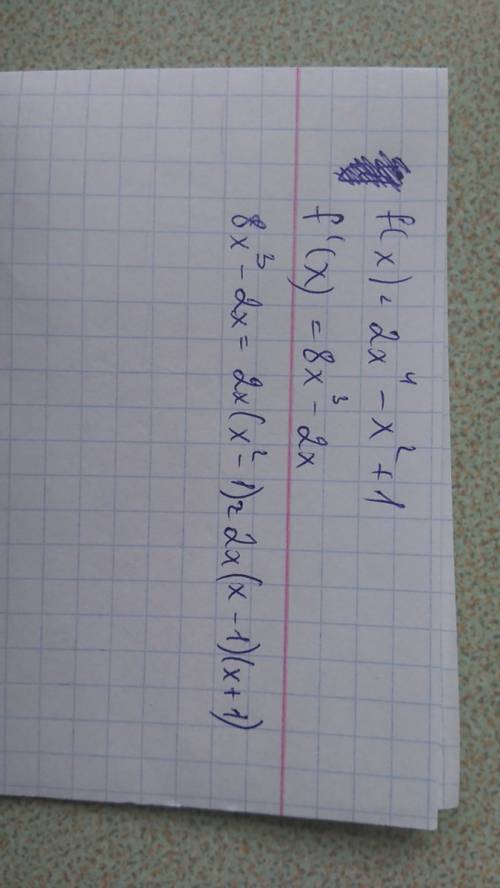 f(x) = 2x⁴ - x² + 1
f'(x) = 8x³ - 2x
8x³ - 2x = 2x(x² - 1) = 2x(x - 1)(x + 1)